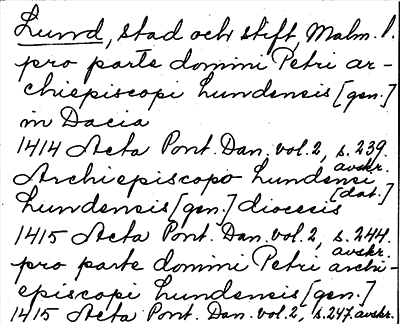 Lund, stad och stift, Malm. l.
pro parte domini Petri ar-
chiepiscopi Lundensis [gen.]
in Dacia
1414 Acta Pont. Dan. vol. 2, s. 239.
avskr.
Archiepiscopo Lundensi
[dat.]
Lundensis [gen.] diocesis
1415 Acta Pont. Dan. vol. 2, s. 244.
avskr.
pro parte domini Petri archi-
episcopi Lundensis [gen.]
1415 Acta Pont. Dan. vol. 2, s. 247. avskr.